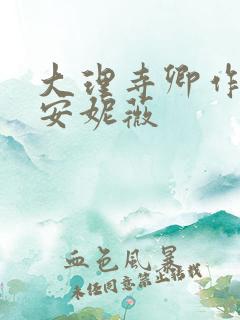 大理寺卿作
安妮薇
血色风暴
未经同意禁止转载